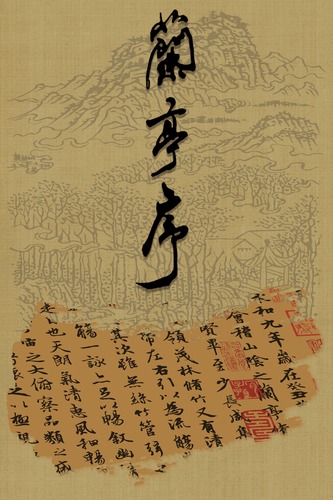 蘭亭序
和九年歲在癸丑
會稽山陰之蘭亭
賢畢至少長咸集
領茂林脩竹又有清
帶左右引以為流觴
其次雖無絲竹管弦
觴一詠亦足以暢敘幽
也天朗氣清惠風和暢
宙之大俯察品類之盛
以極視